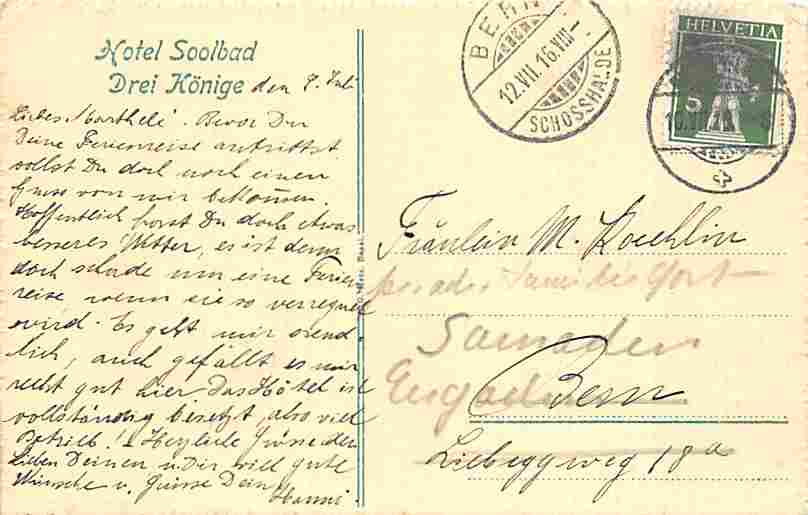 Hotel Soolbad
Drei Könige den 9. Juli
Liebes Martheli! Bevor Du
Deine Ferienreise antrittst
sollst Du doch noch einen
Gruss von mir bekommen.
Hoffentlich hast Du doch etwas
besseres Wetter, es ist denn
doch schade um eine Ferien
reise wenn sie so verregnet
wird. Es geht mir ordent
lich, auch gefällt es mir
recht gut hier. Das Hôtel ist
vollständig besetzt, also viel
Betrieb! Herzliche Grüsse den
lieben Deinen u. Dir viel gute
Wünsche u. Grüsse Dein
Hanni.
BERN
12.VII.16.VIII-
SCHOSSHALDE
HELVETIA
5
Fräulein M. Koechlin
Samaden
Engadin
Bern
Liebeggweg 18a